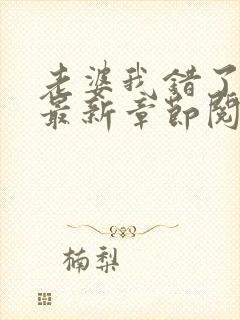 老婆我错了
最新章节阅
楠梨